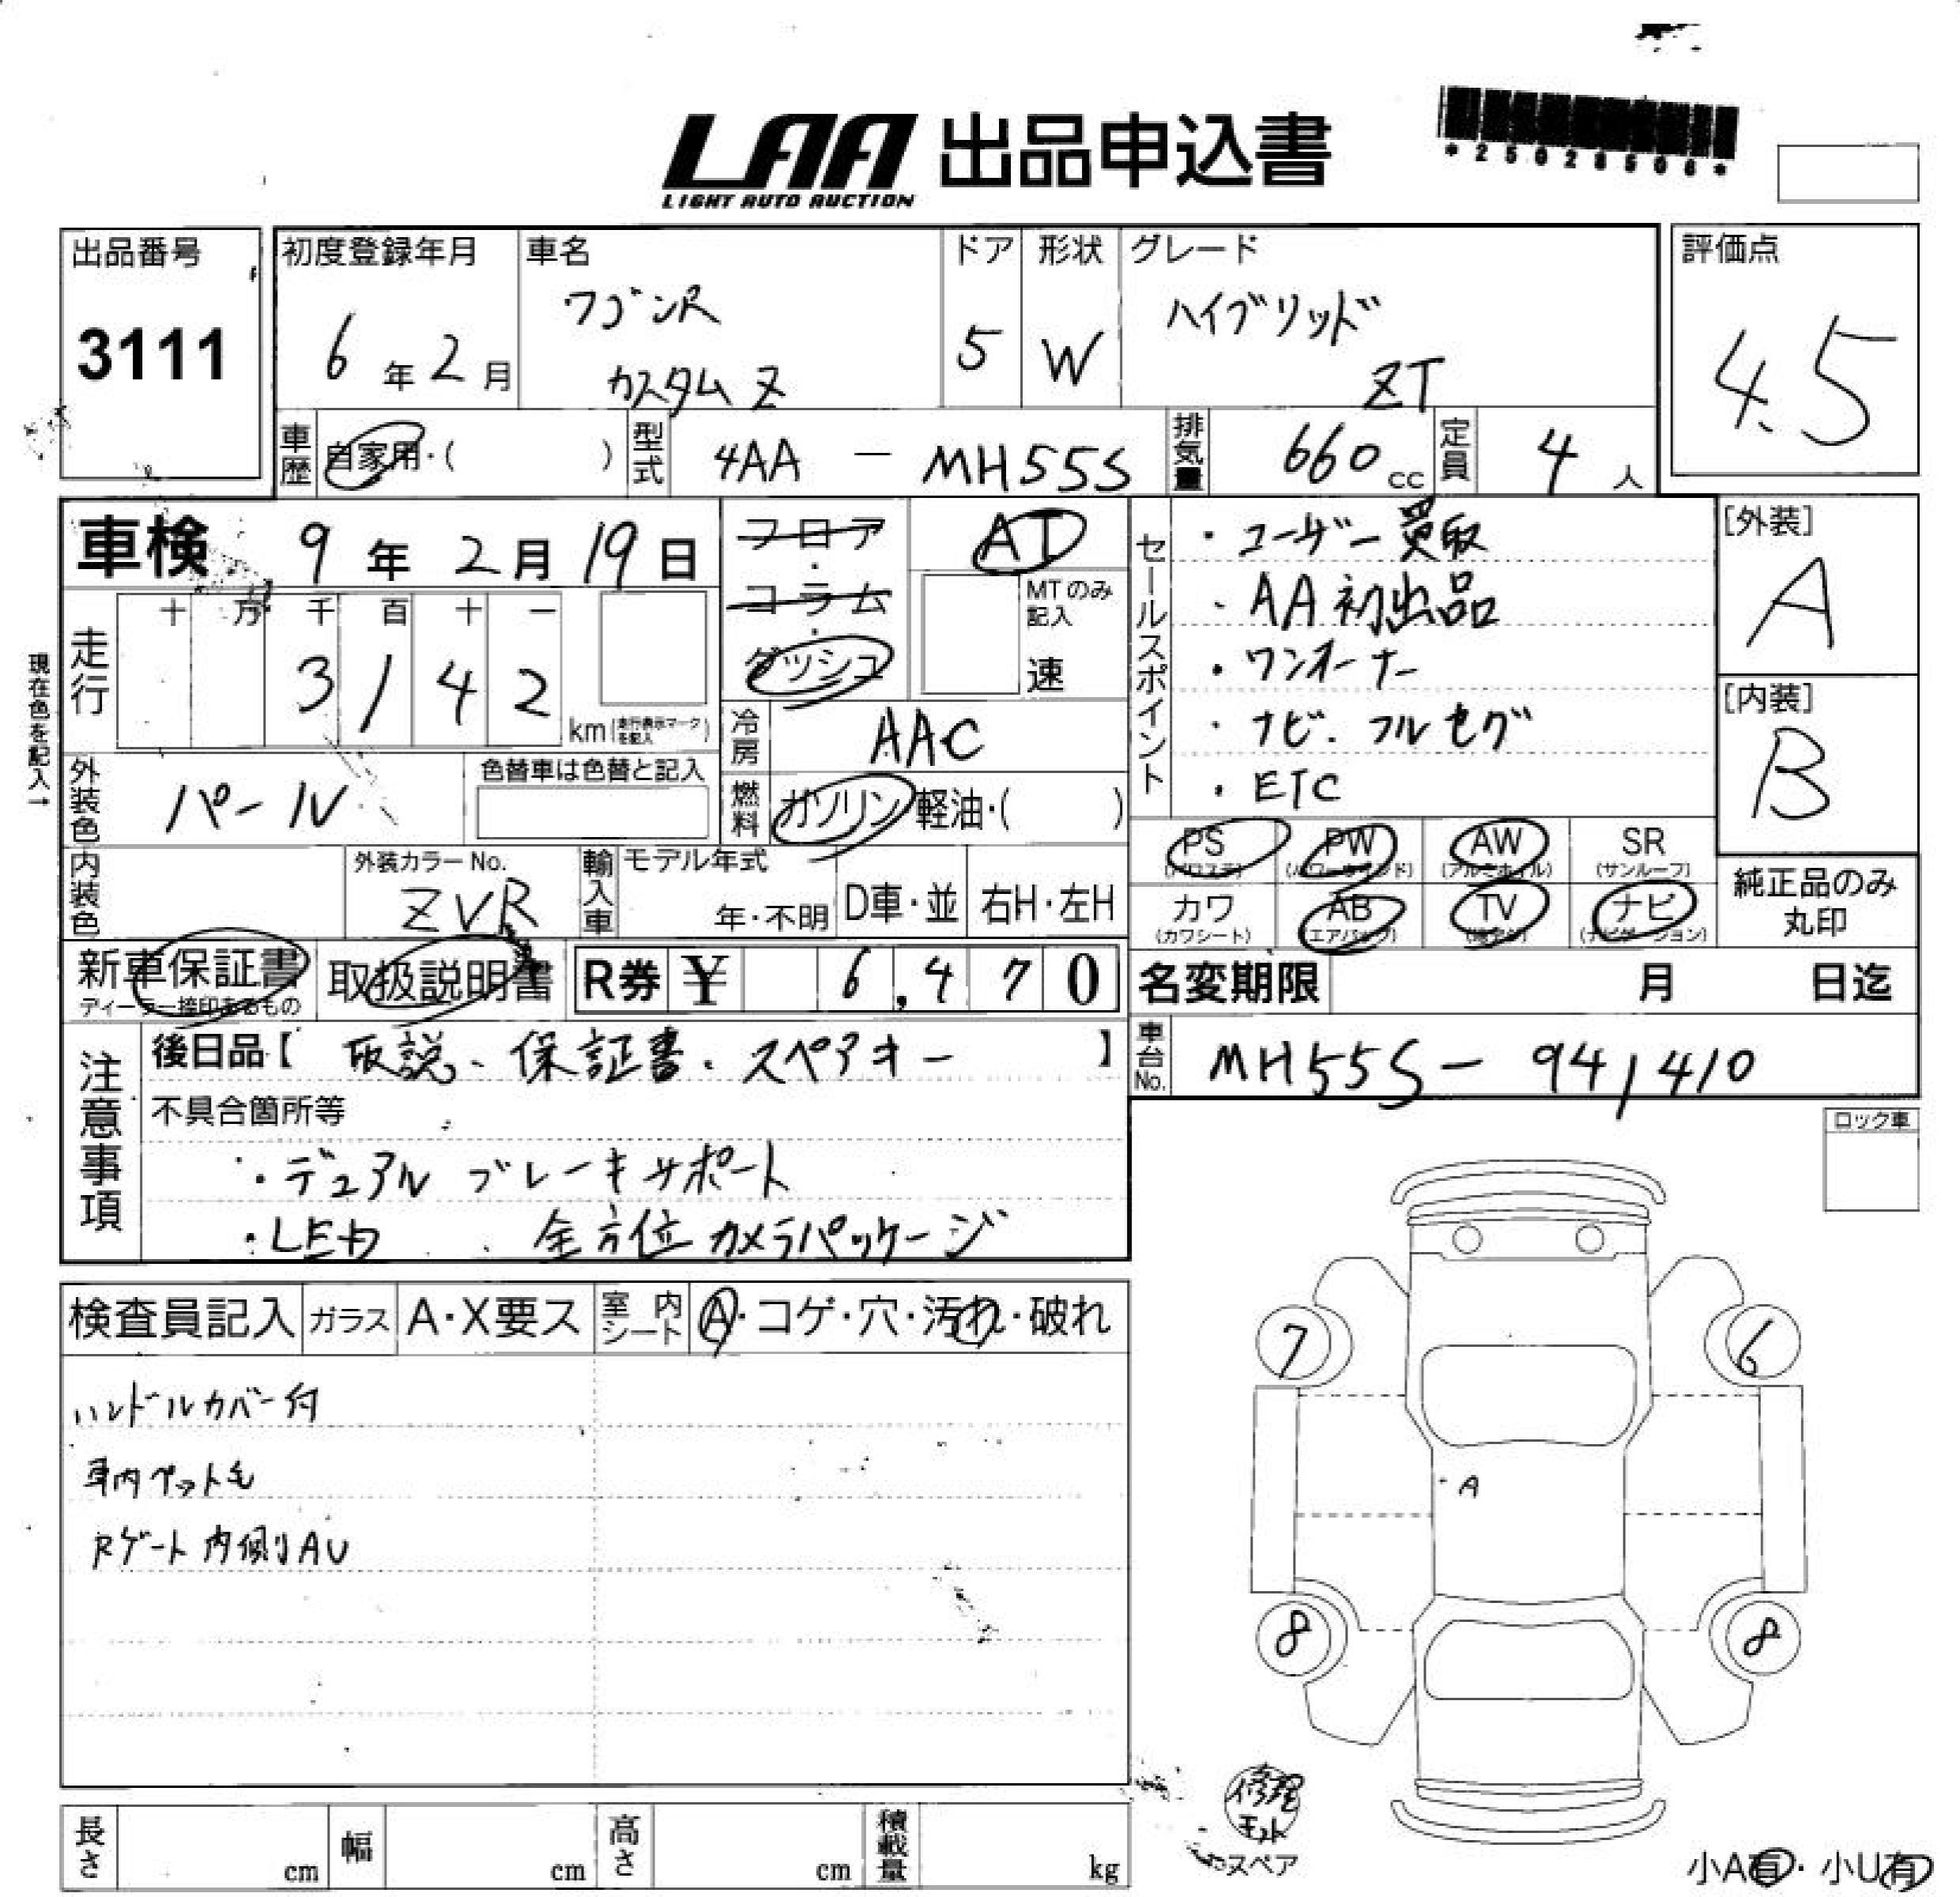 LAA 出品申込書
LIGHT AUTO AUCTION
*25028506*
出品番号
3111
初度登録年月
6年2月
車名
ワゴンR
カスタムZ
ドア
5
形状
W
グレード
ハイブリッド
ZT
評価点
4.5
車歴
自家用・( )
型式
4AA - MH55S
排気量
660cc
定員
4人
車検 9年2月19日
現在色を記入→
走行
十 万 千 百 十 一
3142
km(走行表示マークを記入)
フロア・コラム・ダッシュ
AT
MTのみ記入
速
冷房
AAC
燃料
ガソリン 軽油・( )
外装色
パール
色替車は色替と記入
内装色
外装カラーNo.
ZVR
輸入車
モデル年式
年・不明
D車・並
右H・左H
セールスポイント
・ユーザー買取
・AA初出品
・ワンオーナー
・ナビ.フルセグ
・ETC
[外装]
A
[内装]
B
PS
(パワステ)
PW
(パワーウインド)
AW
(アルミホイル)
SR
(サンルーフ)
カワ
(カワシート)
AB
(エアバッグ)
TV
ナビ
(ナビゲーション)
純正品のみ
丸印
新車保証書
ディーラー捺印あるもの
取扱説明書
R券 ¥ 6,470
名変期限 月 日迄
車台No.
MH55S-941410
注意事項
後日品【取説・保証書・スペアキー】
不具合箇所等
・デュアルブレーキサポート
・LED 全方位カメラパッケージ
ロック車
検査員記入
ガラス
A・X要ス
室内シート
A・コゲ・穴・汚れ・破れ
ハンドルカバー付
車内ペット毛
Rゲート内側AU
7
6
A
8
8
長さ
cm
幅
cm
高さ
cm
積載量
kg
修理キット
スペア
小A有・小U有